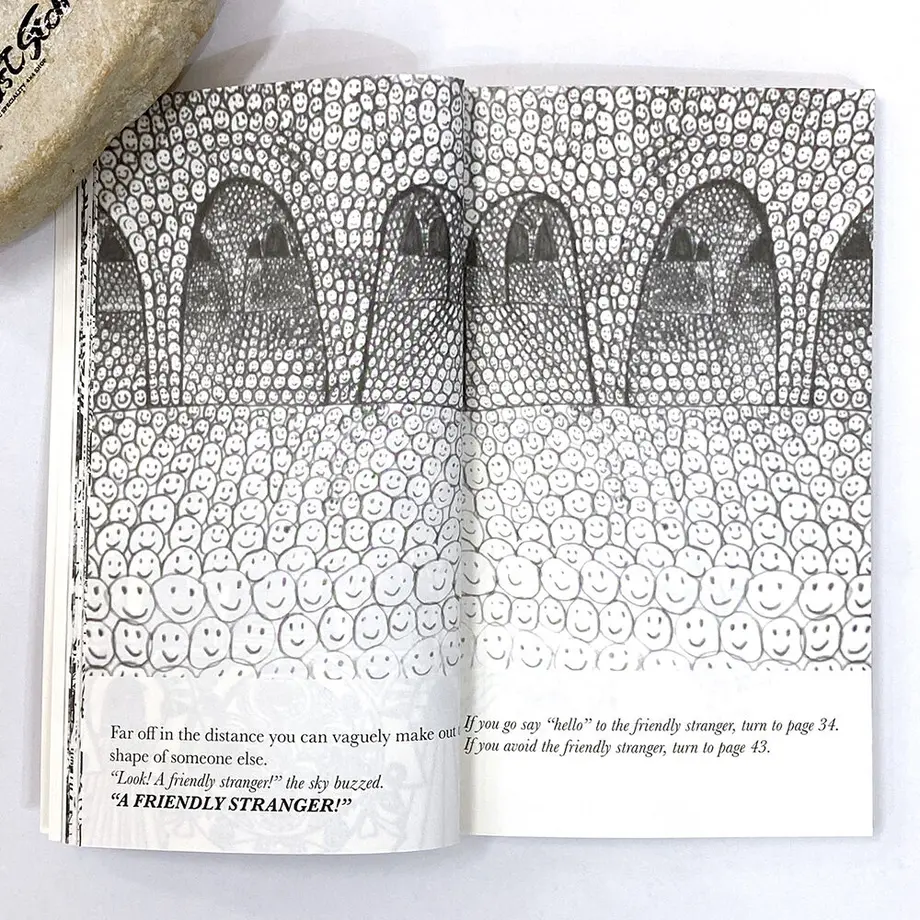 SPECIALITY ART SHOP
Far off in the distance you can vaguely make out
shape of someone else.
“Look! A friendly stranger!” the sky buzzed.
“A FRIENDLY STRANGER!”
If you go say “hello” to the friendly stranger, turn to page 34.
If you avoid the friendly stranger, turn to page 43.